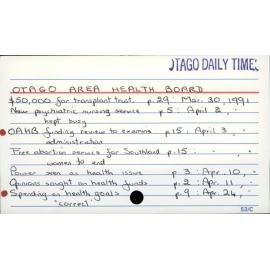 OTAGO DAILY TIMES
OTAGO AREA HEALTH BOARD
$50,000 for transplant trust. p.29: Mar. 30, 1991
New psychiatric nursing service p.5: April 2, "
kept busy
OAHB funding review to examine p.15: April 3, "
administration
Free abortion service for Southland p.15: " "
women to end
Power seen as health issue p.3: Apr. 10, "
Opinions sought on health funds p.2: Apr. 11, "
Spending on health goals p.9: Apr. 24, "
"correct"